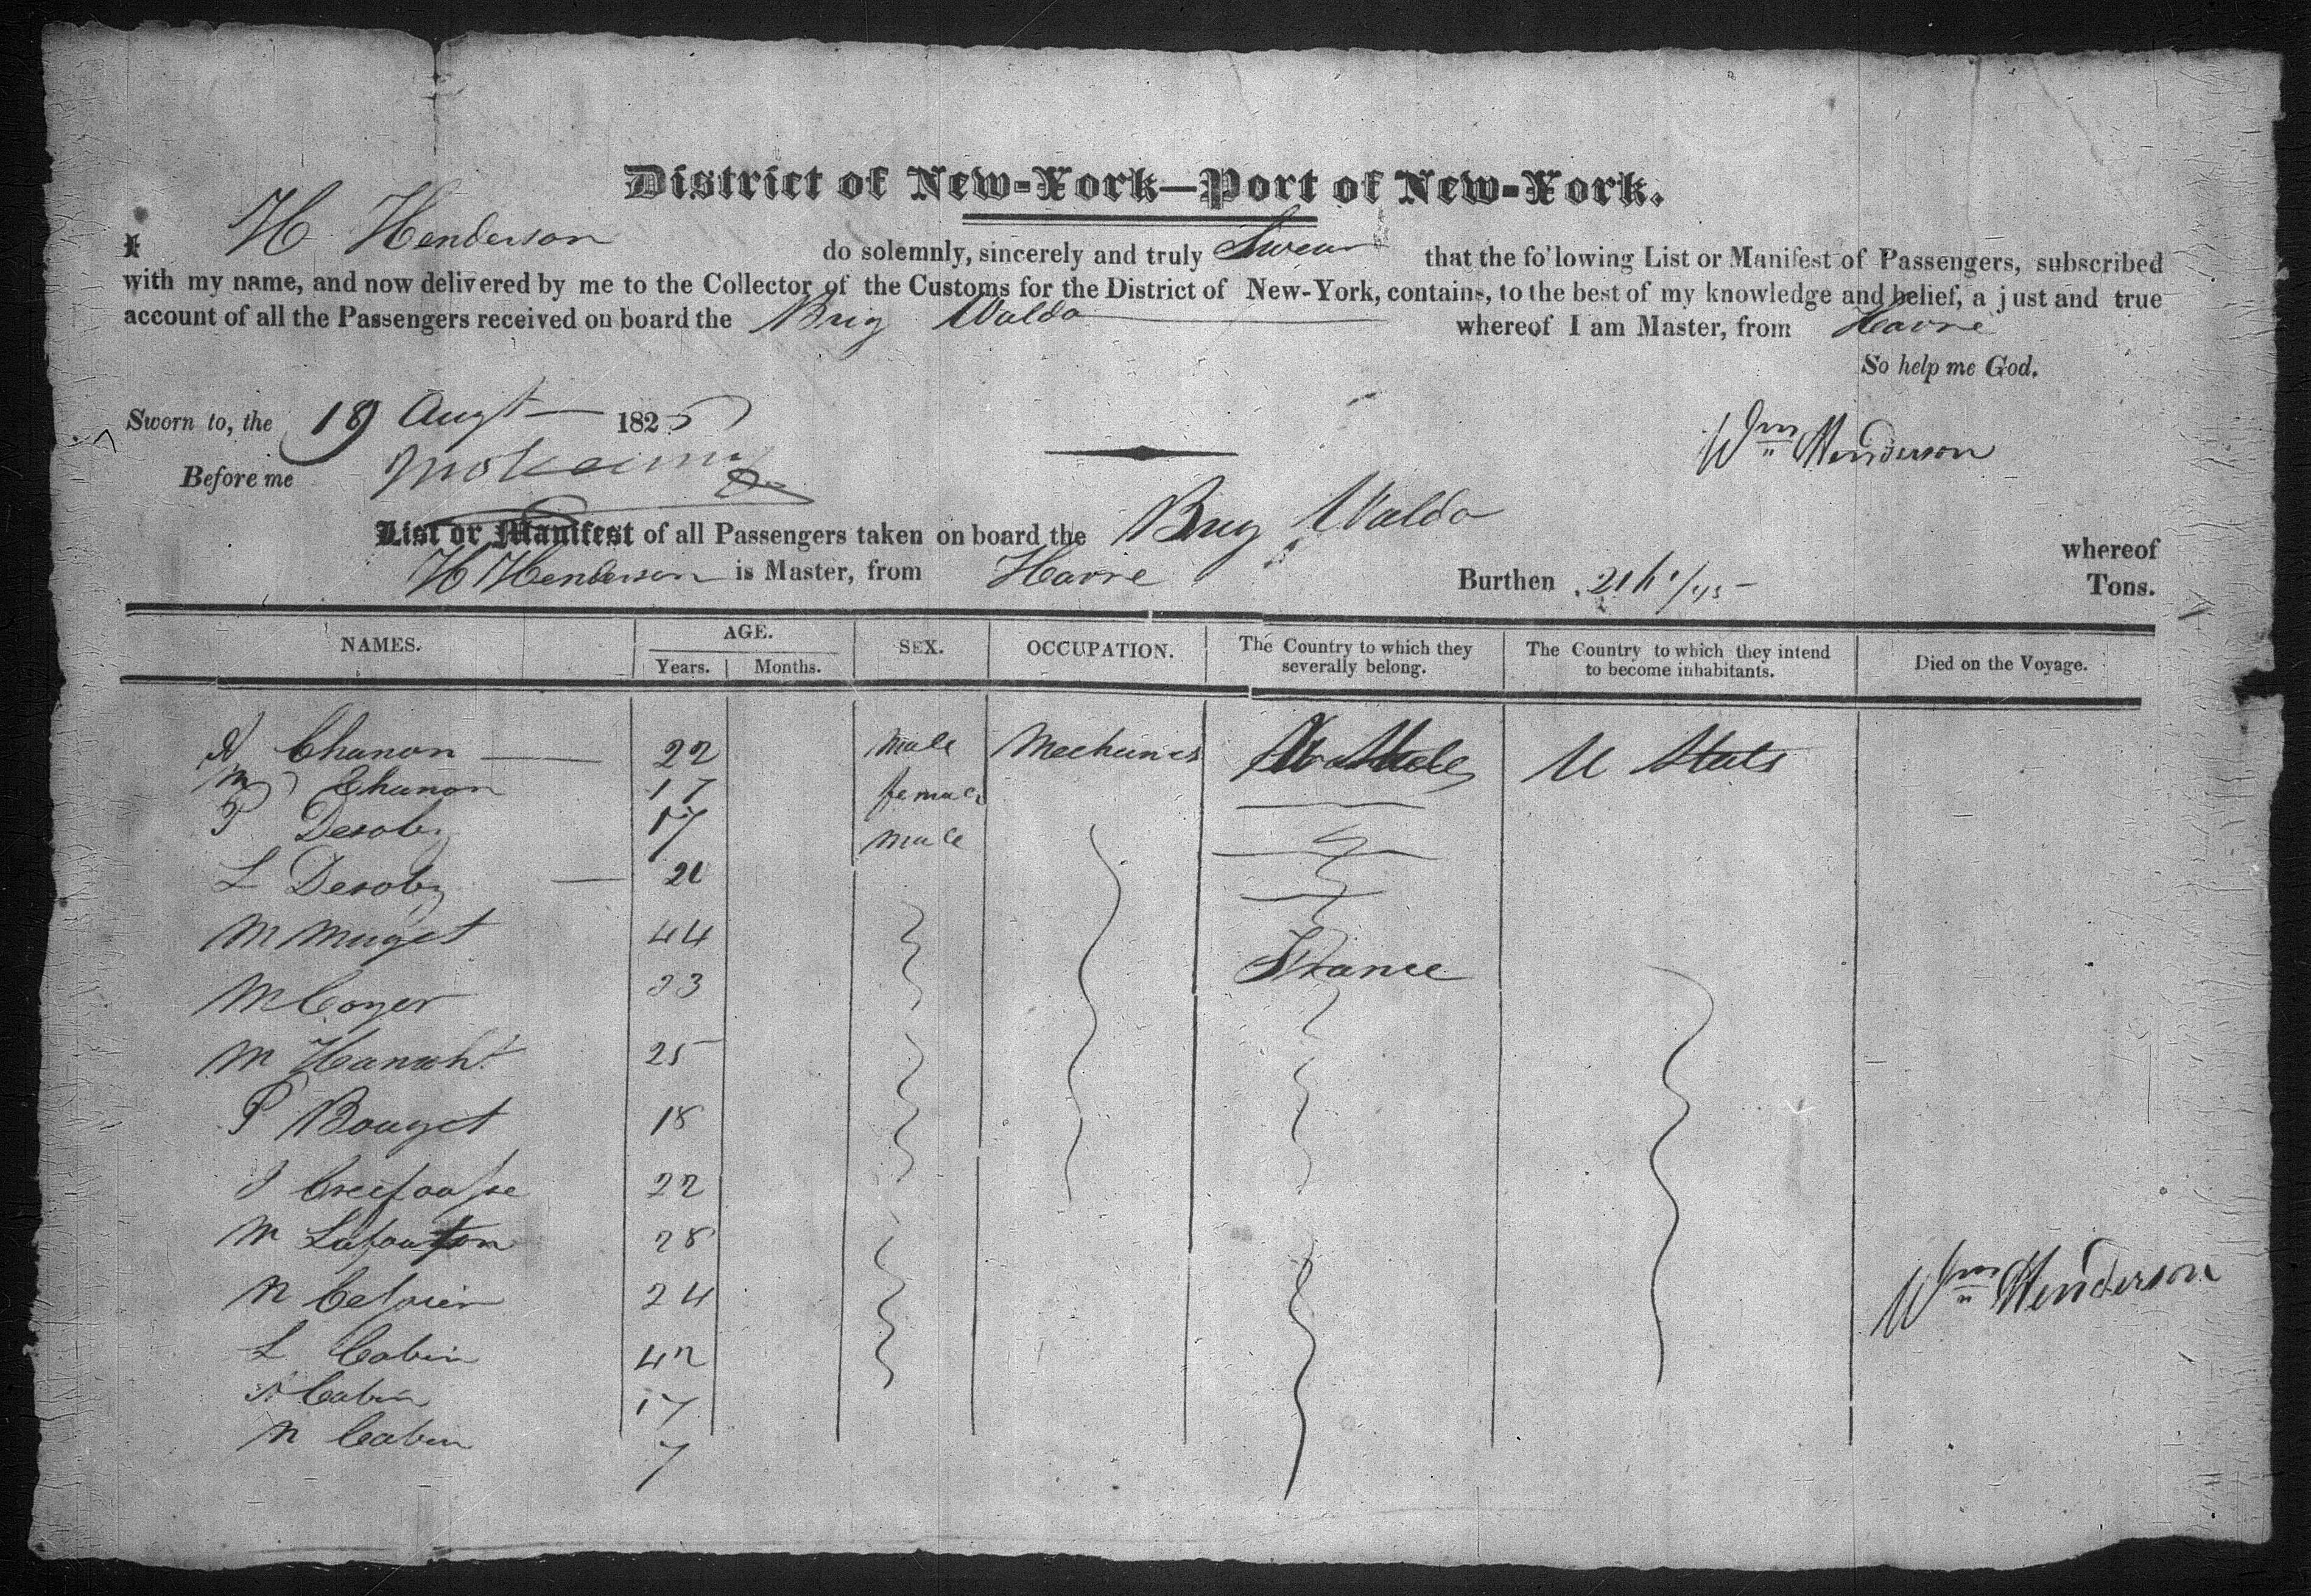 District of New-York—Port of New-York.
I H Henderson do solemnly, sincerely and truly Swear that the fo'lowing List or Manifest of Passengers, subscribed
with my name, and now delivered by me to the Collector of the Customs for the District of New-York, contains, to the best of my knowledge and belief, a just and true
account of all the Passengers received on board the Brig Waldo whereof I am Master, from Havre
So help me God.
Sworn to, the 18 Augt 1825
Wm Henderson
Before me
List or Manifest of all Passengers taken on board the Brig Waldo whereof
H Henderson is Master, from Havre Burthen Tons.
NAMES. AGE. SEX. OCCUPATION. The Country to which they severally belong. The Country to which they intend to become inhabitants. Died on the Voyage.
Years. Months.
Chanon 22 male Mechanics U States
M Chanon 17 female
P Desoby 17 male
L Desoby 21
M Muget 44
France
M Coyer 23
M 25
P Bouget 18
J 22
M 28
N 24
Wm Henderson
L Cabin 42
Cabin 17
N Cabin 7